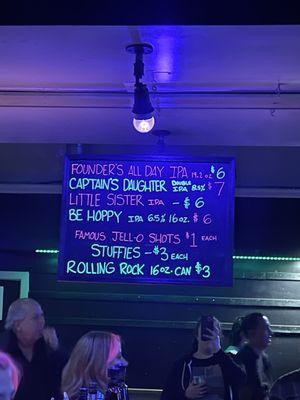 FOUNDER'S ALL DAY IPA 19.2 oz $6
CAPTAIN'S DAUGHTER DOUBLE IPA 8.5% $7
LITTLE SISTER IPA - $6
BE HOPPY IPA 6.5% 16oz. $6
FAMOUS JELL-O SHOTS $1 EACH
STUFFIES - $3 EACH
ROLLING ROCK 16oz. CAN $3